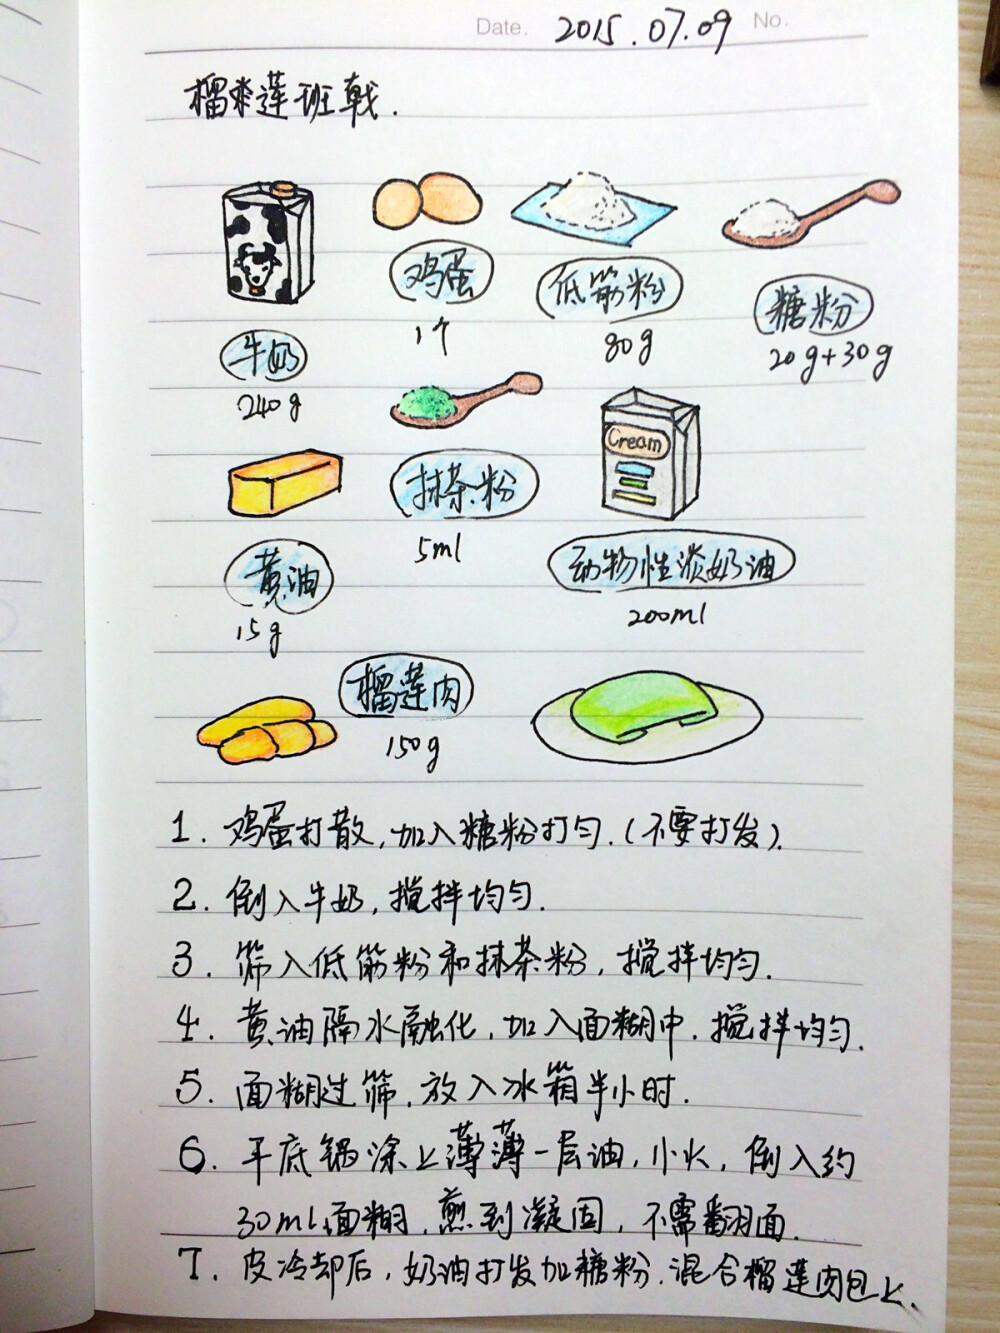 Date. 2015.07.09 No.
榴莲班戟.
鸡蛋
1个
低筋粉
80g
糖粉
20g+30g
牛奶
240g
Cream
抹茶粉
5ml
动物性淡奶油
200ml
黄油
15g
榴莲肉
150g
1. 鸡蛋打散,加入糖粉打匀.(不要打发).
2. 倒入牛奶,搅拌均匀.
3. 筛入低筋粉和抹茶粉,搅拌均匀.
4. 黄油隔水融化,加入面糊中.搅拌均匀.
5. 面糊过筛,放入冰箱半小时.
6. 平底锅涂上薄薄一层油,小火,倒入约
30ml面糊,煎到凝固,不需翻面.
7. 皮冷却后,奶油打发加糖粉.混合榴莲肉包上.